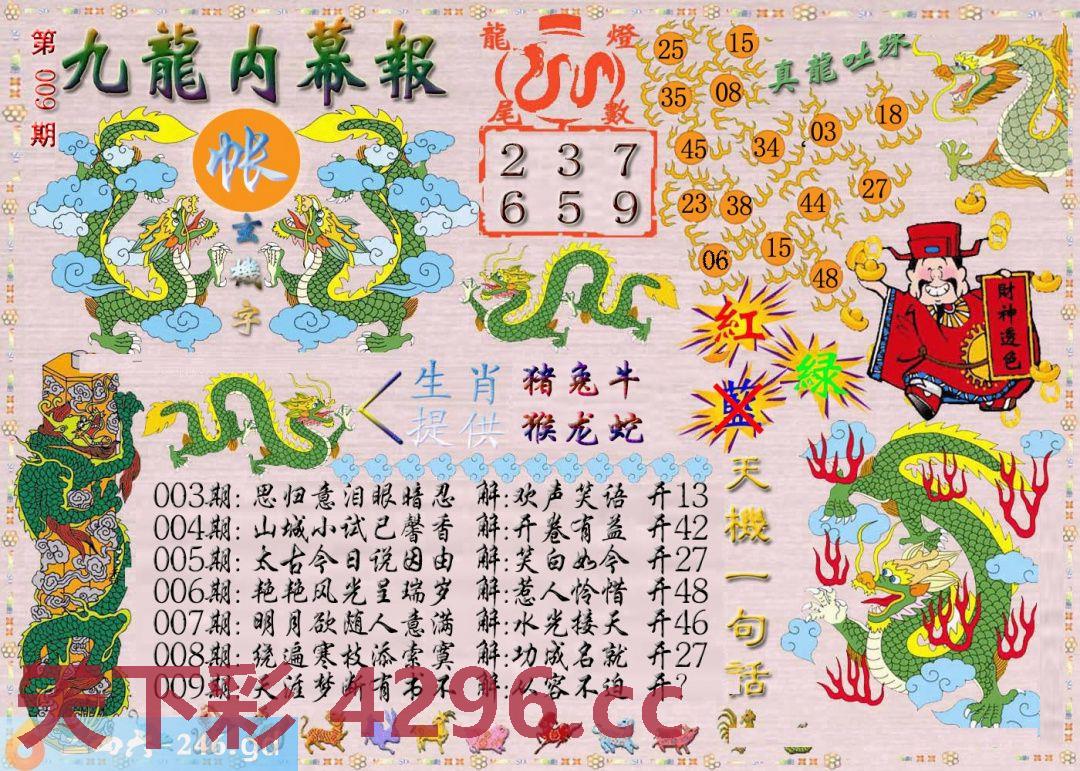 第009期
九龍内幕報
帐
玄機字
龍燈
尾數
2 3 7
6 5 9
真龍吐珠
25 15
35 08
45 34 03 18
23 38 44 27
06 15 48
財神透色
紅
綠
藍
生肖 猪兔牛
提供 猴龙蛇
天機一句话
003期: 思归意泪眼暗忍 解:欢声笑语 开13
004期: 山城小试已馨香 解:开卷有益 开42
005期: 太古今日说因由 解:笑白如今 开27
006期: 艳艳风光呈瑞岁 解:惹人怜惜 开48
007期: 明月欲随人意满 解:水光接天 开46
008期: 绕遍寒枝添索寞 解:功成名就 开27
009期: 天涯梦断有书不 解:从容不迫 开?
天下彩 4296.cc
246.gd